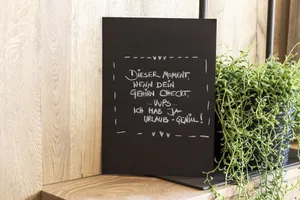 DIESER MOMENT,
WENN DEIN
GEHIRN CHECKT,
..UUPS..
ICH HAB JA
URLAUB - GENIAL!